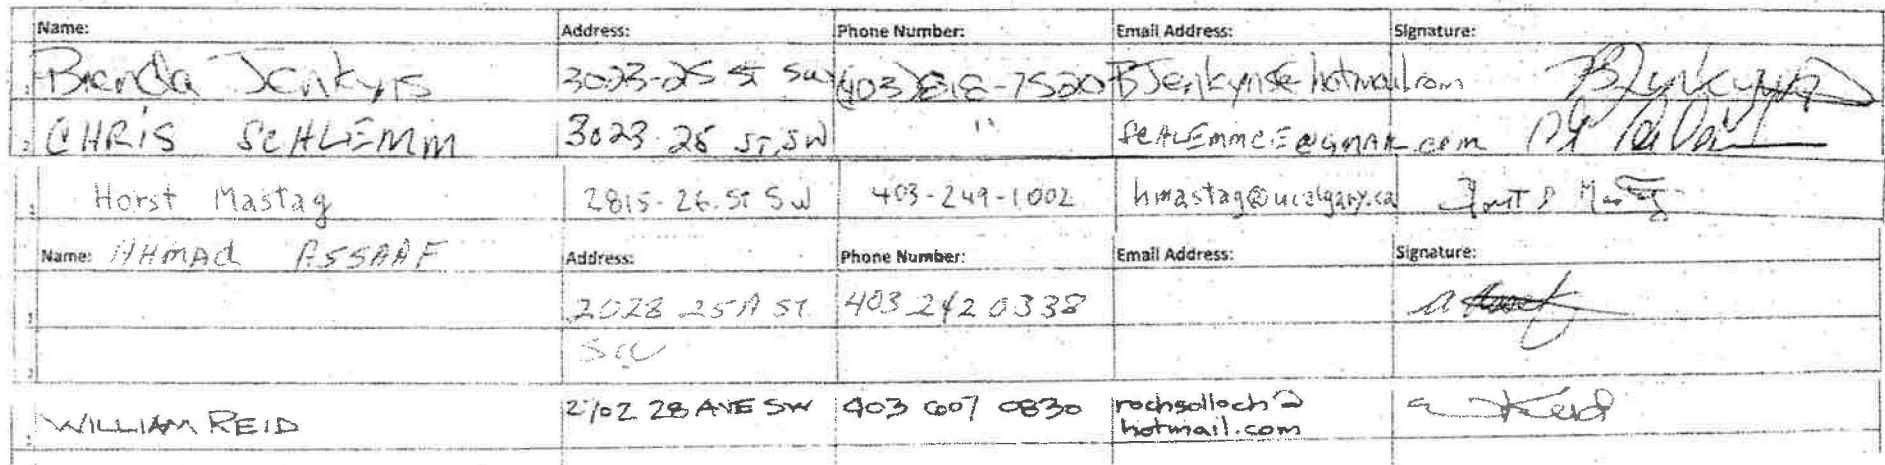 Name: Address: Phone Number: Email Address: Signature:
Brenda Jenkyns 3023-25 St SW (403)818-7520 BJenkyns@hotmail.com BJenkyns
CHRIS SCHLEMM 3023-25 ST, SW " SCHLEMMCE@GMAIL.com
Horst Mastag 2815-26.St SW 403-249-1002 hmastag@ucalgary.ca
Name: AHMAd ASSAAF Address: Phone Number: Email Address: Signature:
2028 25A ST 403 242 0338
SW
WILLIAM REID 2702 28 AVE SW 403 607 0830 rochsolloch@
hotmail.com Reid